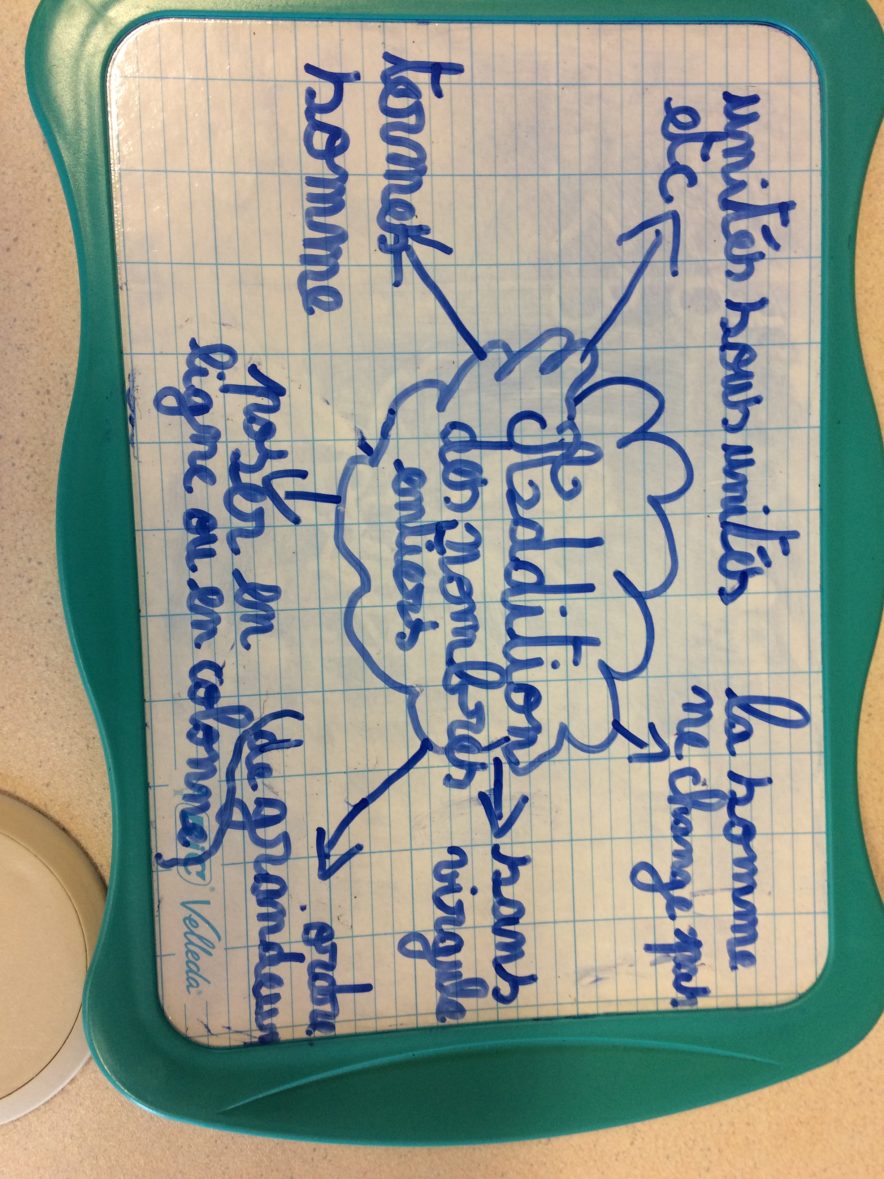 unités sous unités
etc
la somme
ne change pas
Addition
des nombres
entiers
sans
virgule
termes
somme
poser en
ligne ou en colonnes
ordre
(de grandeur
Velleda